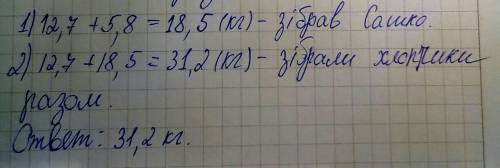 1) 12,7 + 5,8 = 18,5 (кг) - зібрав Сашко.
2) 12,7 + 18,5 = 31,2 (кг) - зібрали хлопчики
разом.
Ответ: 31,2 кг.